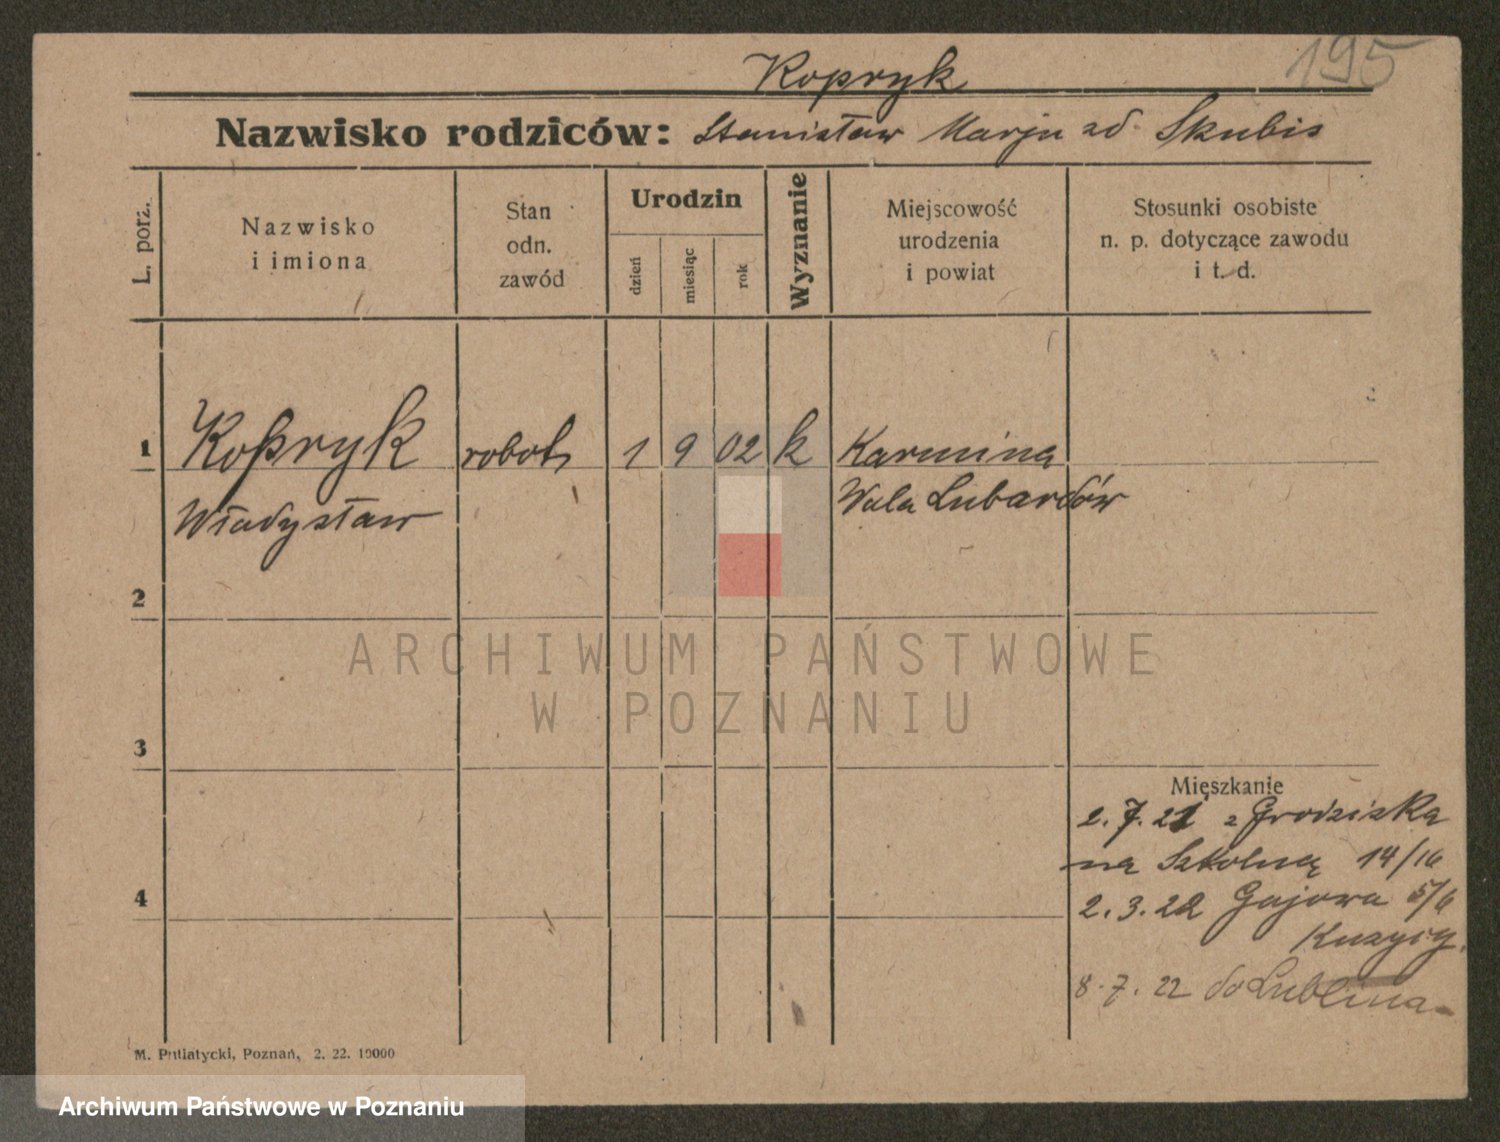 195
Kopryk
Nazwisko rodziców: Stanisław Marja zd. Skubis
L. porz.
Nazwisko
i imiona
Stan
odn.
zawód
Urodzin
dzień
miesiąc
rok
Wyznanie
Miejscowość
urodzenia
i powiat
Stosunki osobiste
n. p. dotyczące zawodu
i t. d.
1 Kopryk robot. 1 9 02 k Karmina
Władysław Wola Lubardów
2
3
Mieszkanie
2.7.21 z Grodziska
na Szkolną 14/16
4
2.3.22 Gajowa 5/6
8.7.22 do Lublina
M. Putiatycki, Poznań, 2. 22. 10000
ARCHIWUM PAŃSTWOWE
W POZNANIU
Archiwum Państwowe w Poznaniu